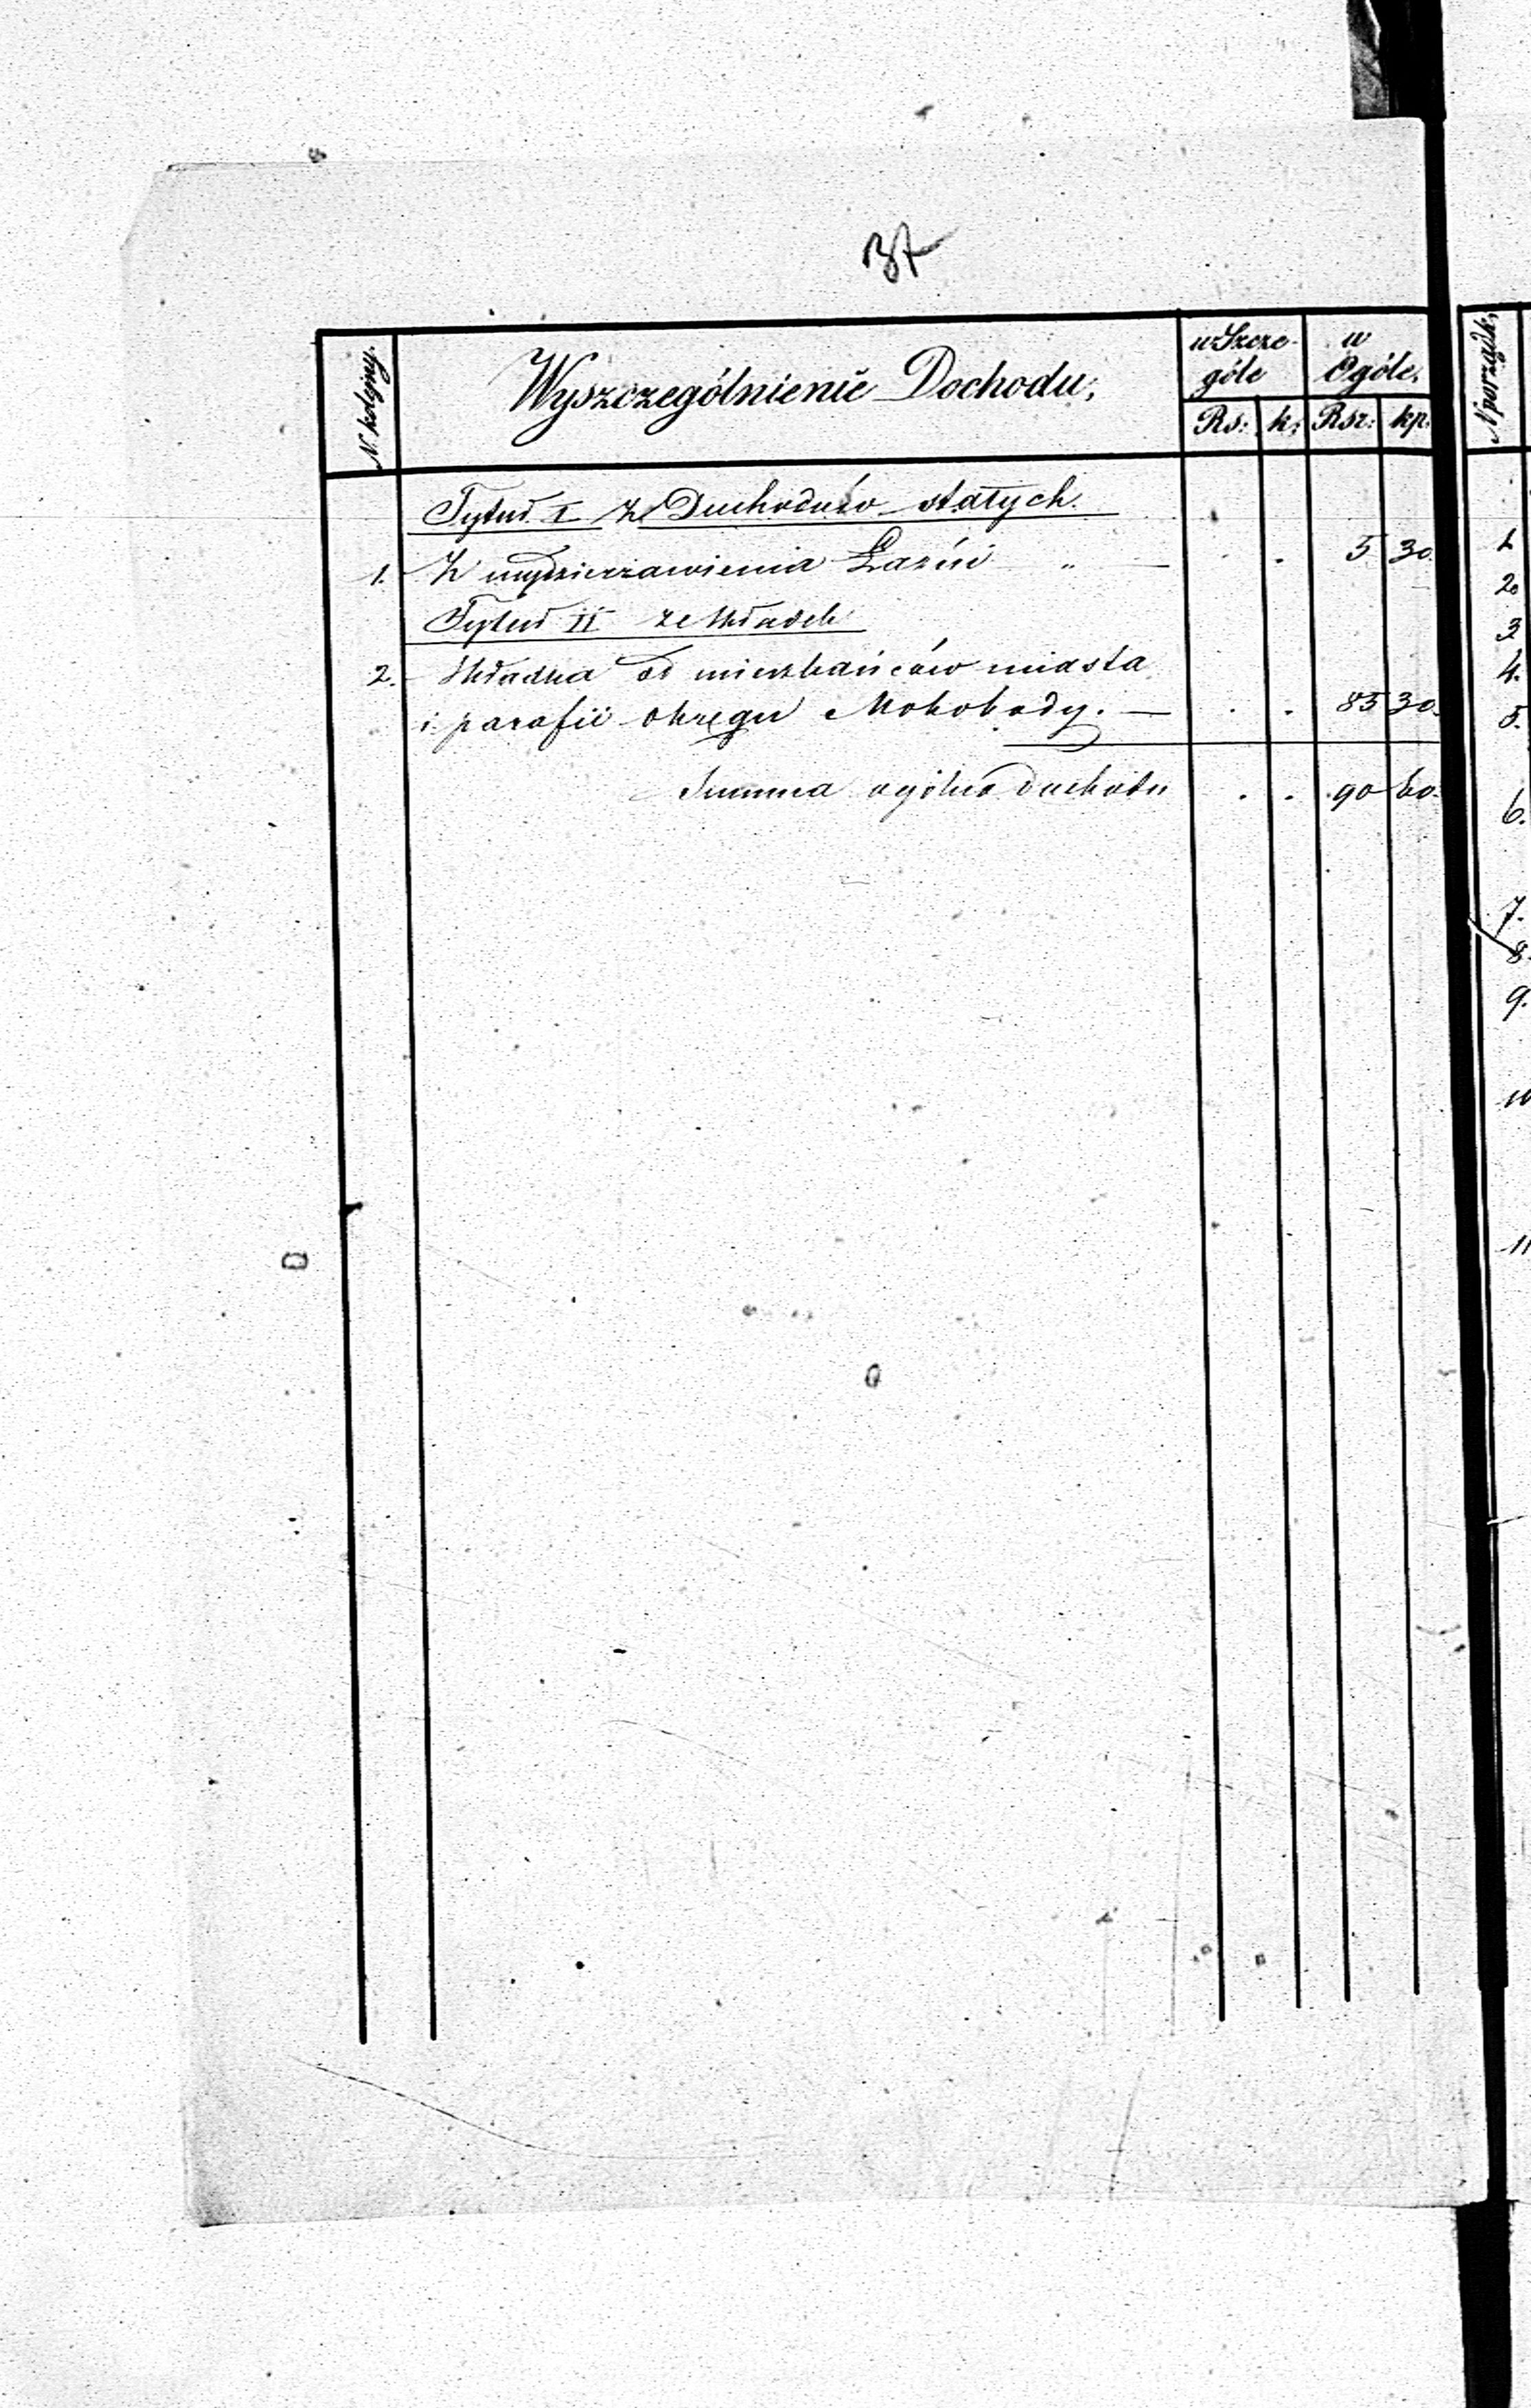 37
N. kolejny.
Wyszczególnienie Dochodu,
w Szcze-
góle
w
Ogóle,
Rs: k: Rsr: kp:
Tytuł I Z Dochodów stałych.
1. Z wydzierżawienia Łaźni " — . . 5 30.
Tytuł II ze składek
2. Składka od mieszkańców miasta
i parafii okręgu Mokobody. — . . 85 30.
Summa ogólna dochodu . . 90 60.
N porządk.
1
2.
3
4.
5.
6.
7.
8.
9.
10
11